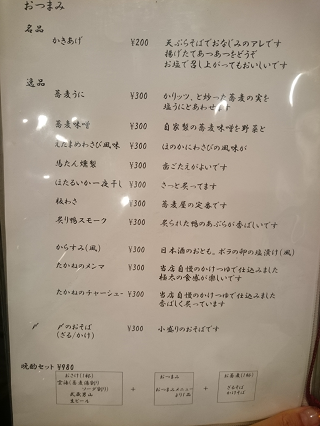 おつまみ
名品
かきあげ ¥200 天ぷらそばでおなじみのアレです
揚げたてあつあつをどうぞ
お塩で召し上がってもおいしいです
逸品
蕎麦うに ¥300 かリッツ、と炒った蕎麦の実を
塩うにとあわせ
蕎麦味噌 ¥300 自家製の蕎麦味噌を野菜と
えだまめわさび風味 ¥300 ほのかにわさびの風味が
馬たん燻製 ¥300 歯ごたえがよいです
ほたるいか一夜干し ¥300 さっと炙ってます
板わさ ¥300 蕎麦屋の定番です
炙り鴨スモーク ¥300 炙られた鴨のあぶらが香ばしいです
からすみ(風) ¥300 日本酒のおとも、ボラの卵の塩漬け(風)
たかねのメンマ ¥300 当店自慢のかけつゆで仕込みました
極太の食感が楽しいです
たかねのチャーシュー ¥300 当店自慢のかけつゆで仕込みました
香ばしく炙っています
〆 〆のおそば ¥300 小盛りのおそばです
(ざる/かけ)
晩酌セット ¥980
おさけ(1杯) おつまみ お蕎麦(1杯)
雲海(蕎麦湯割り
ソーダ割り)
武蔵男山
生ビール
+ おつまみメニュー
より1品
+ ざるそば
かけそば